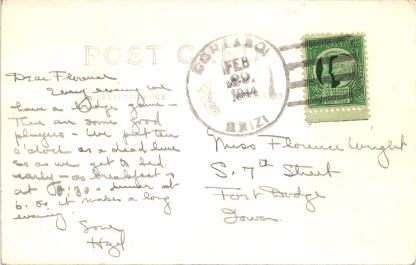 POST C
FEB
29
1944
Dear Florence
Every evening we
have a bridge game -
There are some good
players - We put ten
o'clock as a dead line
so as we get to bed
early - as breakfast is
at 8:30 - dinner at
6. so it makes a long
evening.
Love
Hazel
Miss Florence Wright
S. 7th Street
Fort Dodge
Iowa.